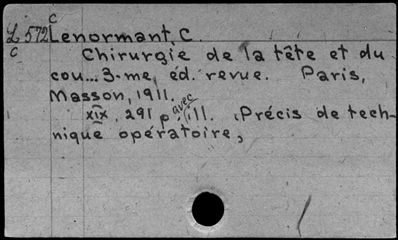 C
L 572 Lenormant, C.
C
Chirurgie de la tête et du
cou... 3-me, éd. revue. Paris,
Masson, 1911.
XIX, 291 p. avec ill. (Précis de tech-
nique opératoire,